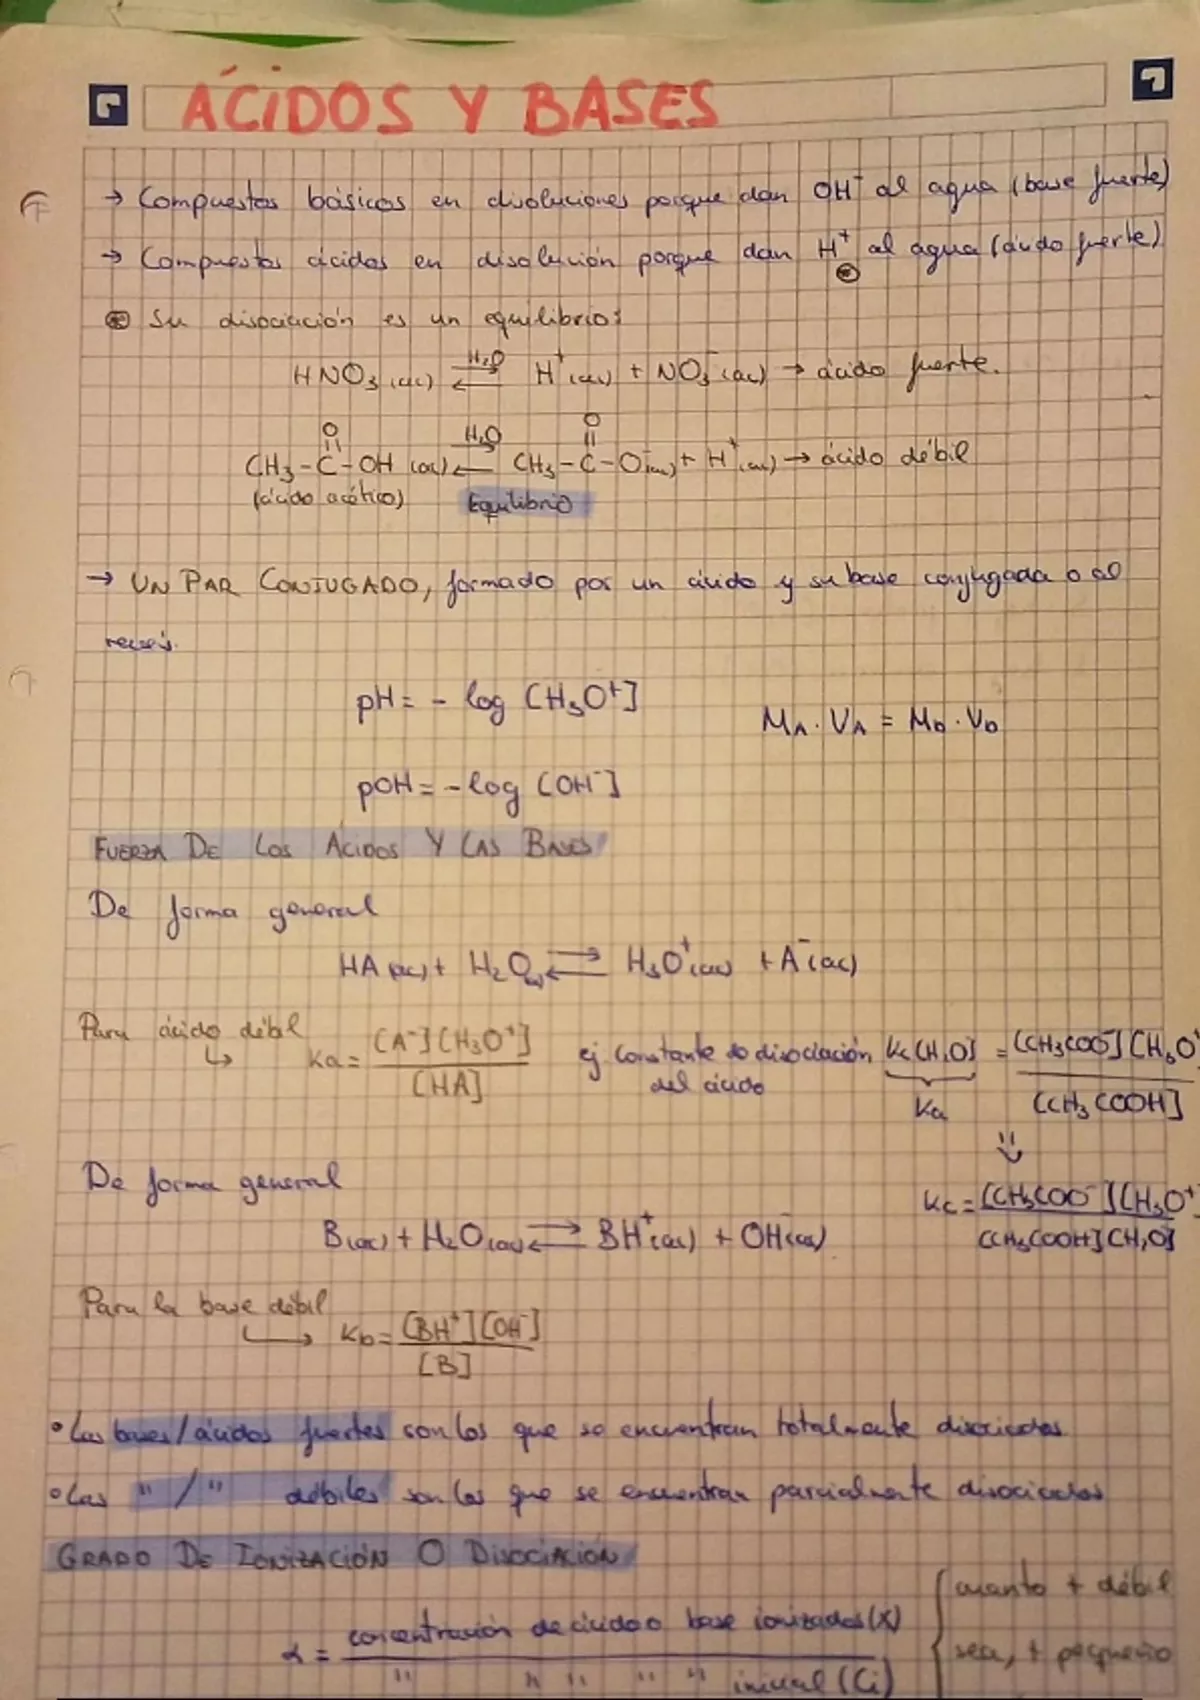 ÁCIDOS Y BASES
→ Compuestos básicos en disoluciones porque dan OH⁻ al agua (base fuerte)
→ Compuestos ácidos en disolución porque dan H⁺ al agua (ácido fuerte)
⊛
⊛ Su disociación es un equilibrio:
HNO₃ (ac) ⇌ H₂O H⁺ (ac) + NO₃⁻ (ac) → ácido fuerte.
O O
|| H₂O ||
CH₃-C-OH (ac) ⇌ CH₃-C-O⁻(ac) + H⁺ (ac) → ácido débil
(ácido acético) Equilibrio
→ UN PAR CONJUGADO, formado por un ácido y su base conjugada o al
revés.
pH = - log [H₃O⁺]
M_A · V_A = M_b · V_b
pOH = - log [OH⁻]
FUERZA DE LOS ÁCIDOS Y LAS BASES
De forma general
HA (ac) + H₂O ⇌ H₃O⁺(ac) + A⁻(ac)
Para ácido débil
↳ Ka = [A⁻][H₃O⁺] / [HA] ej Constante de disociación Kc[H₂O] = [CH₃COO⁻][H₃O⁺ / [CH₃COOH]
del ácido Ka
De forma general
Kc = [CH₃COO⁻][H₃O⁺] / [CH₃COOH][H₂O]
B(ac) + H₂O(ac) ⇌ BH⁺(ac) + OH⁻(ac)
Para la base débil
↳ Kb = [BH⁺][OH⁻] / [B]
• Las bases/ácidos fuertes son los que se encuentran totalmente disociados
• Las " / " débiles son los que se encuentran parcialmente disociados
GRADO DE IONIZACIÓN O DISOCIACIÓN
α = concentración de ácido o base ionizados (X) / " " " " " inicial (Ci)
{ cuanto + débil
sea, + pequeño